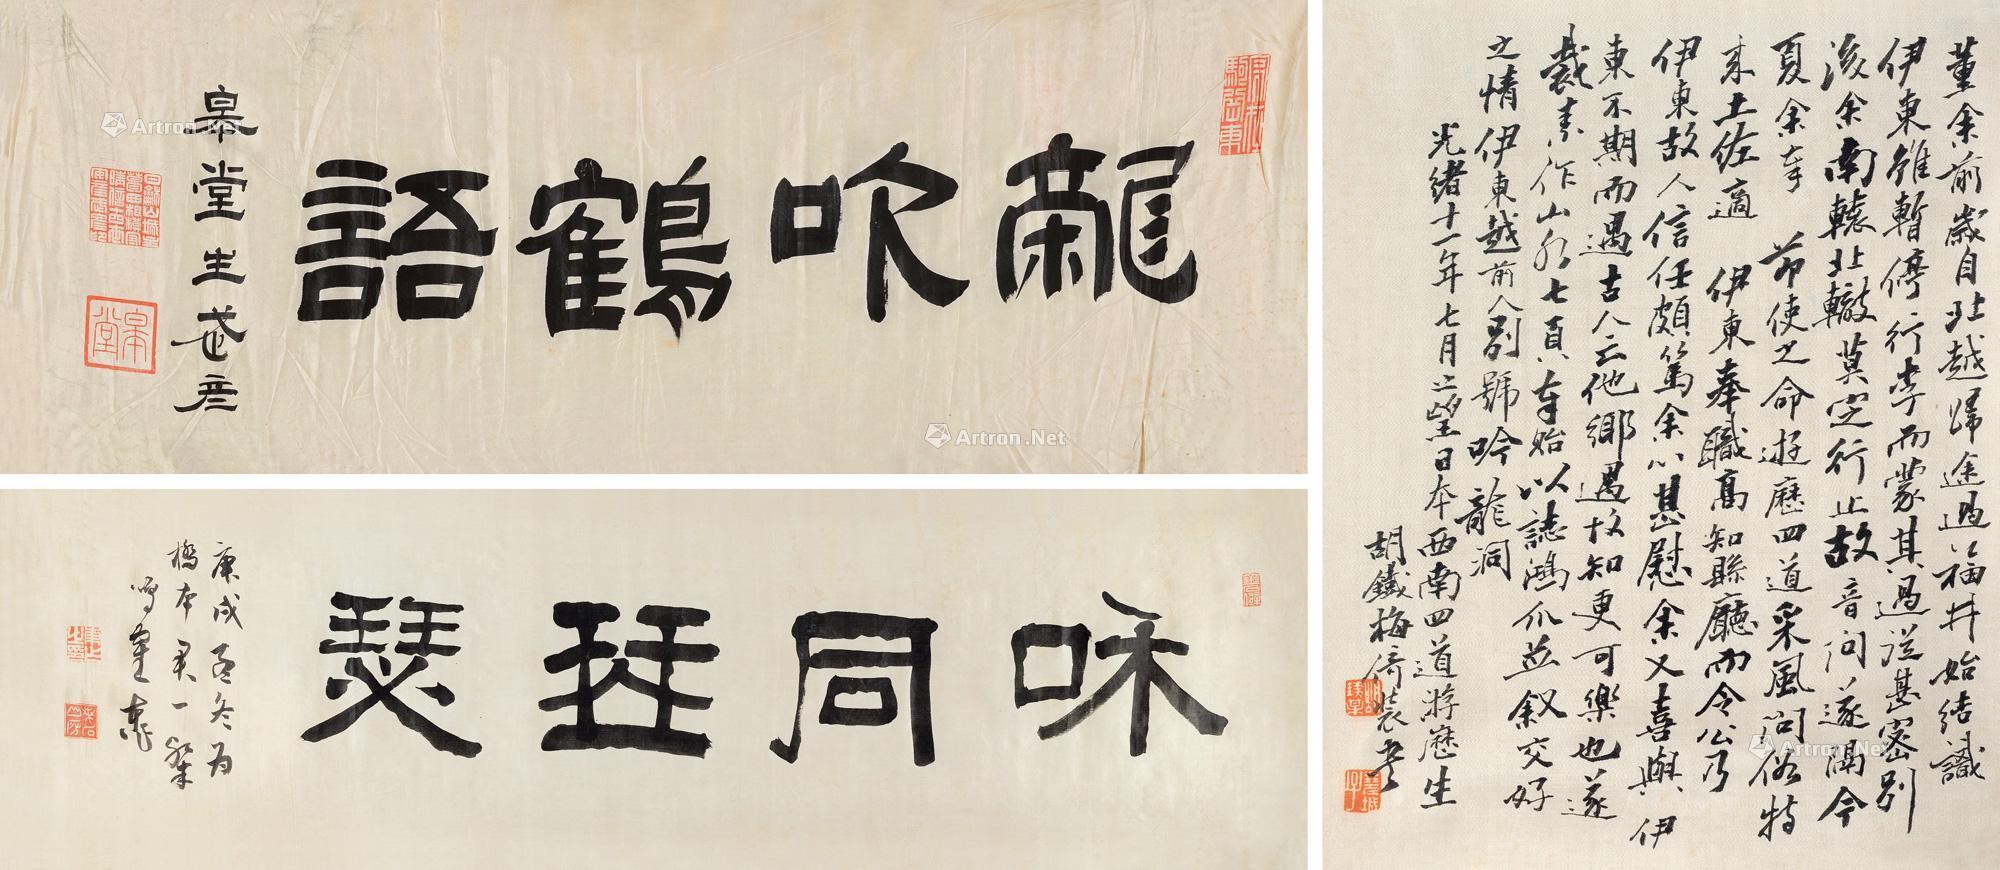 龍吹鶴語
皋堂生
皋堂
和同琴瑟
庚戌孟冬為
橋本君一粲
鳴鶴
董余前歲自北越歸途過福井始結識
伊東雖暫停行李而蒙其過從甚密別
後余南轅北轍莫定行止故音问遂闊今
夏余奉 節使之命遊歷四道采風问俗特
来土佐適 伊東奉職高知縣廳而令公乃
伊東故人信任頗篤余心甚慰余又喜與伊
東不期而遇古人云他鄉遇故知更可樂也遂
裁素作山水七頁奉貽以誌鴻爪並叙交好
之情伊東越前人別號吟龍洞
光緒十一年七月上望日本西南四道游歷生
胡鐵梅倚裝書
Artron.Net
Artron.Net
Artron.Net